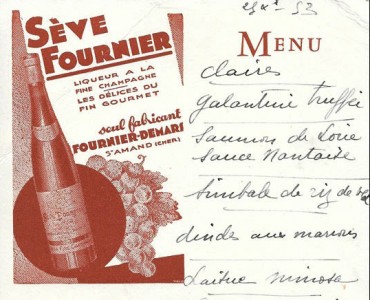 SÈVE
FOURNIER
LIQUEUR A LA
FINE CHAMPAGNE
LES DÉLICES DU
FIN GOURMET
seul fabricant
FOURNIER-DEMARS
St AMAND (CHER)
53
MENU
Claires
Galantine truffée
Saumon de Loire
Sauce Nantaise
Timbale de riz de
dinde aux marrons
Laitue mimosa